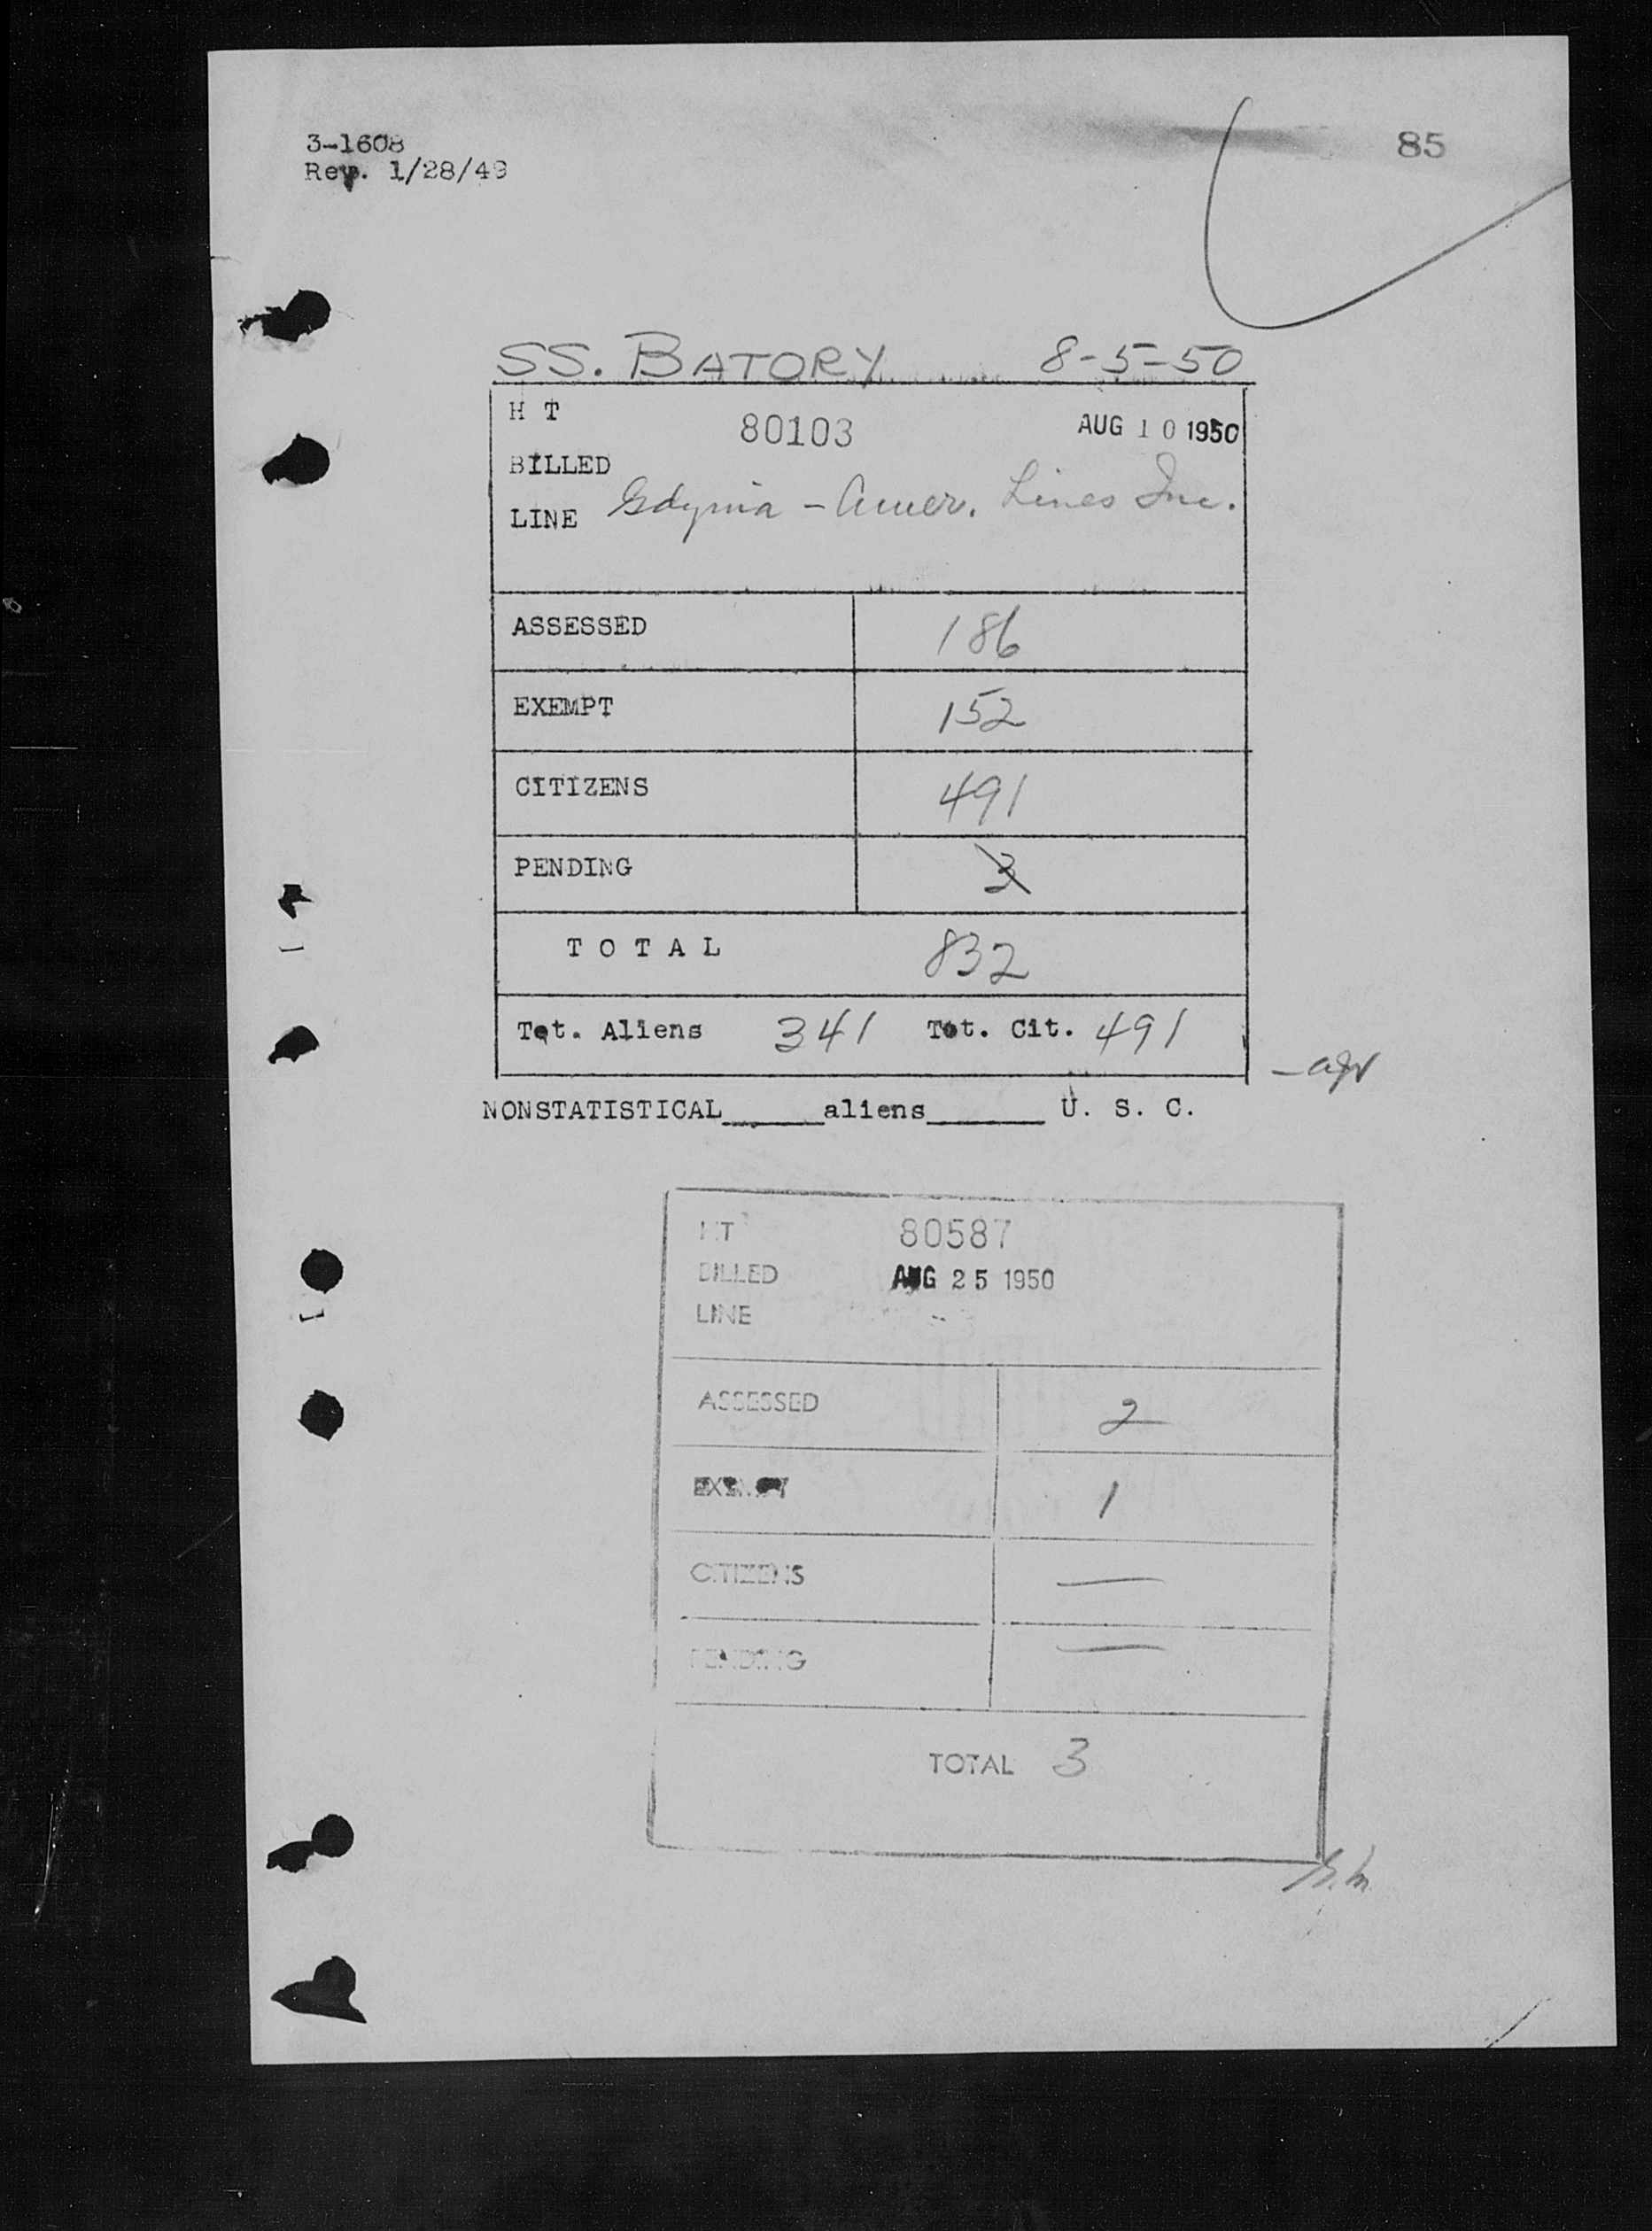 3-1608
Rev. 1/28/49
85
SS. BATORY 8-5-50
H T 80103 AUG 10 1950
BILLED
LINE Gdynia - Amer. Lines Inc.
ASSESSED 186
EXEMPT 152
CITIZENS 491
PENDING 3
TOTAL 832
Tot. Aliens 341 Tot. Cit. 491
NONSTATISTICAL_____aliens______ U. S. C.
HT 80587
BILLED AUG 25 1950
LINE
ASSESSED 2
EXEMPT 1
CITIZENS —
PENDING —
TOTAL 3